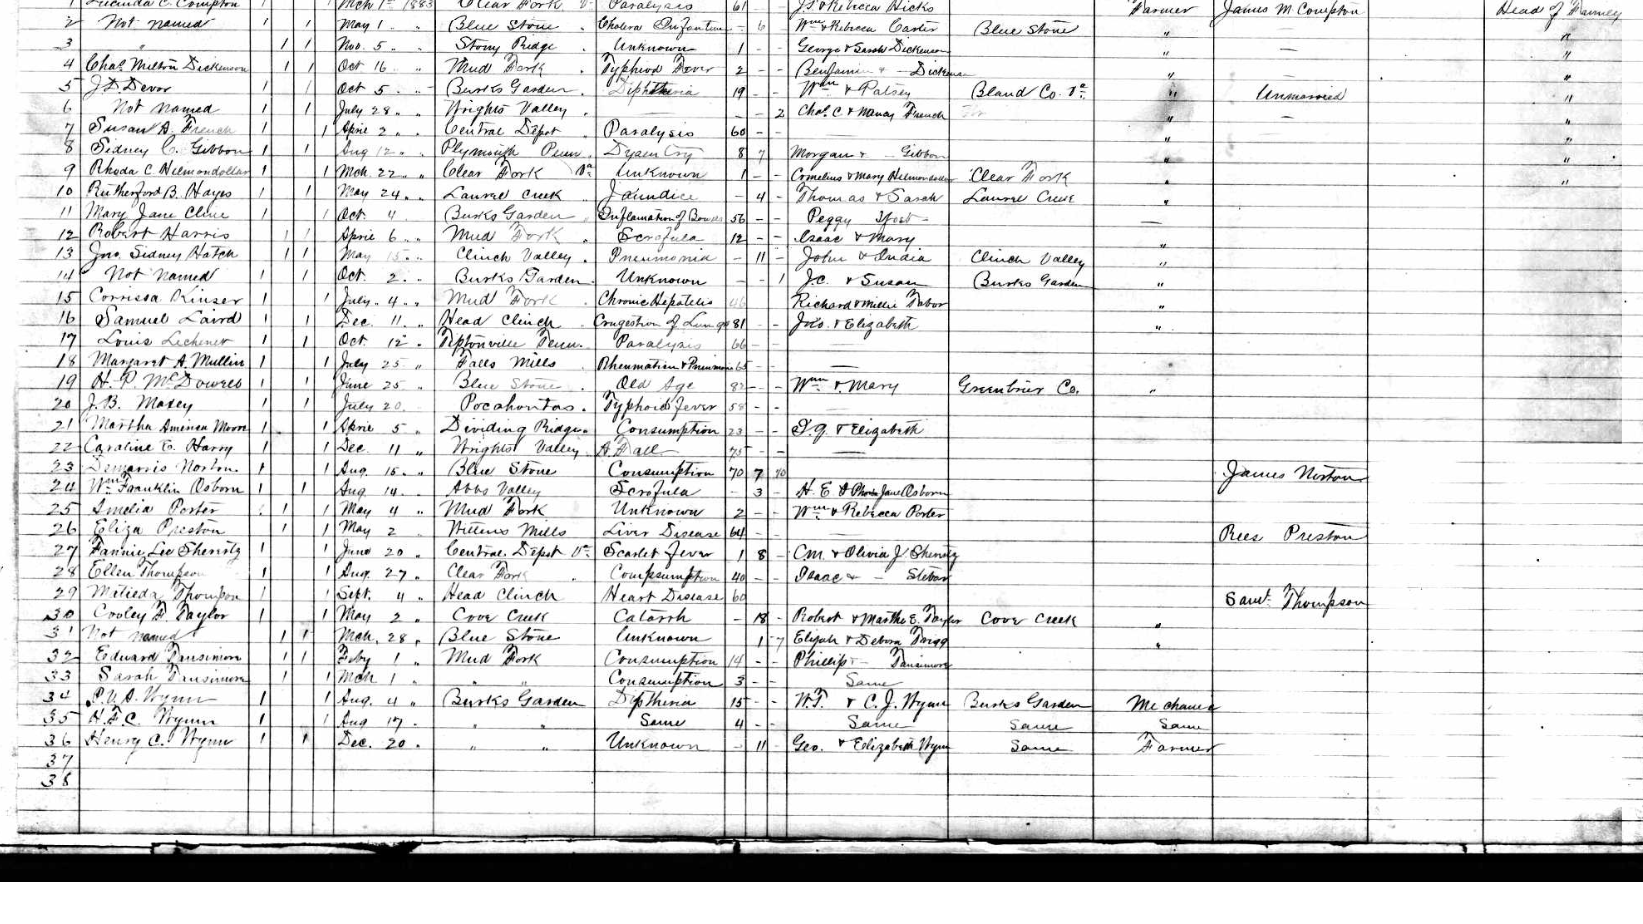 1 Lucinda C. Compton 1 1 Mch 1st 1883 Clear Fork Va Paralysis 61 - - J. & Rebecca Hicks Farmer James M Compton Head of Family
2 Not named 1 1 May 1 " Blue Stone " Cholera Infantum - 6 Wm & Rebecca Carter Blue Stone " — "
3 " 1 1 Nov. 5 " Stony Ridge " Unknown 1 - - George & Sarah Dickenson " — "
4 Chas. Milton Dickenson 1 1 Oct 16 " Mud Fork " Typhiod Fever 2 - - Benjamin & — Dickenson " — "
5 J D Devor 1 1 Oct 5 " Burks Garden " Diphtheria 19 - - Wm & Patsey Bland Co. Va " Unmarried "
6 Not named 1 1 July 28 " Wrights Valley " — - - 2 Chas. C. & Nancy French " — "
7 Susan A. French 1 1 April 2 " Central Depot " Paralysis 60 - - — "
8 Sidney C. Gibbon 1 1 Aug 12 " Plymouth Penn. Dysentry 8 7 Morgan & — Gibbon " "
9 Rhoda C Helmondollar 1 1 Mch. 22 " Clear Fork Va Unknown 1 - - Cornelius & Mary Helmondollar Clear Fork " "
10 Rutherford B. Hayes 1 1 May 24 " Laurel Creek " Jaundice - 4 - Thomas & Sarah Laurel Creek
11 Mary Jane Cline 1 1 Oct. 4 Burks Garden " Inflamation of Bowels 56 - - Peggy —
12 Robert Harris 1 1 April 6 " Mud Fork " Scrofula 12 - - Isaac & Mary "
13 Jno. Sidney Hatch 1 1 May 15 " Clinch Valley " Pneumonia - 11 - John & India Clinch Valley "
14 Not Named 1 1 Oct. 2 " Burks Garden " Unknown - - 1 J.C. & Susan Burks Garden "
15 Corrissa Kinser 1 1 July 4 " Mud Fork Chronic Hepatitis Richard & Millie Tabor
16 Samuel Laird 1 1 Dec. 11 " Head Clinch " Congestion of Lungs 81 - - Jno. & Elizabeth "
17 Louis Lechener 1 1 Oct 12 " Tiptonville Tenn. Paralysis 66 - - —
18 Margaret A. Mullin 1 1 July 25 " Falls Mills Rheumatism & Pneumonia 65 —
19 H. P. McDowell 1 1 June 25 " Blue Stone " Old Age 82 - - Wm & Mary Greenbrier Co. "
20 J. B. Maxey 1 1 July 20 Pocahontas. Typhoid fever 58 - -
21 Martha America Moore 1 1 April 5 " Dividing Ridge " Consumption 23 - - & Elizabeth
22 Caroline E. Harry 1 1 Dec. 11 " Wrights Valley A Fall 75 - - —
23 Norton. 1 1 Aug. 15 " Blue Stone Consumption 70 7 James Norton
24 Wm Franklin Osborn 1 1 Aug 14 " Abbs Valley Scrofula - 3 - H. E & Phoebe Jane Osborn
25 Amelia Porter 1 1 May 4 " Mud Fork Unknown 2 - - Wm & Rebecca Porter
26 Eliza Preston 1 1 May 2 Wittens Mills Liver Disease 64 - - — Rees Preston
27 Fannie Lee 1 1 June 20 " Central Depot Va Scarlet Fever 1 8 - C.M. & Olivia J.
28 Ellen Thompson 1 1 Aug. 27 " Clear Fork " Compsumption 40 - - Isaac & —
29 Matilda Thompson 1 1 Sept. 4 " Head Clinch Heart Disease 60 Saml Thompson
30 Cooley D Taylor 1 1 May 2 " Cove Creek Catarrh - 18 - Robert & Martha E. Taylor Cove Creek "
31 Not named 1 1 Mch. 28 " Blue Stone Unknown 1 7 Elijah & Debora "
32 Edward 1 1 Feby 1 " Mud Fork Consumption 14 - - Phillip —
33 Sarah 1 1 Mch 1 " " " Consumption 3 - - Same
34 Wynn 1 1 Aug. 4 " Burks Garden Diptheria 15 - - W.T. & C. J. Wynn Burks Garden Mechanic
35 H.F.C. Wynn 1 1 Aug 17 " " " Same 4 - - Same Same Same
36 Henry C. Wynn 1 1 Dec. 20 " " " Unknown - 11 - Geo. & Elizabeth Wynn Same Farmer
37
38